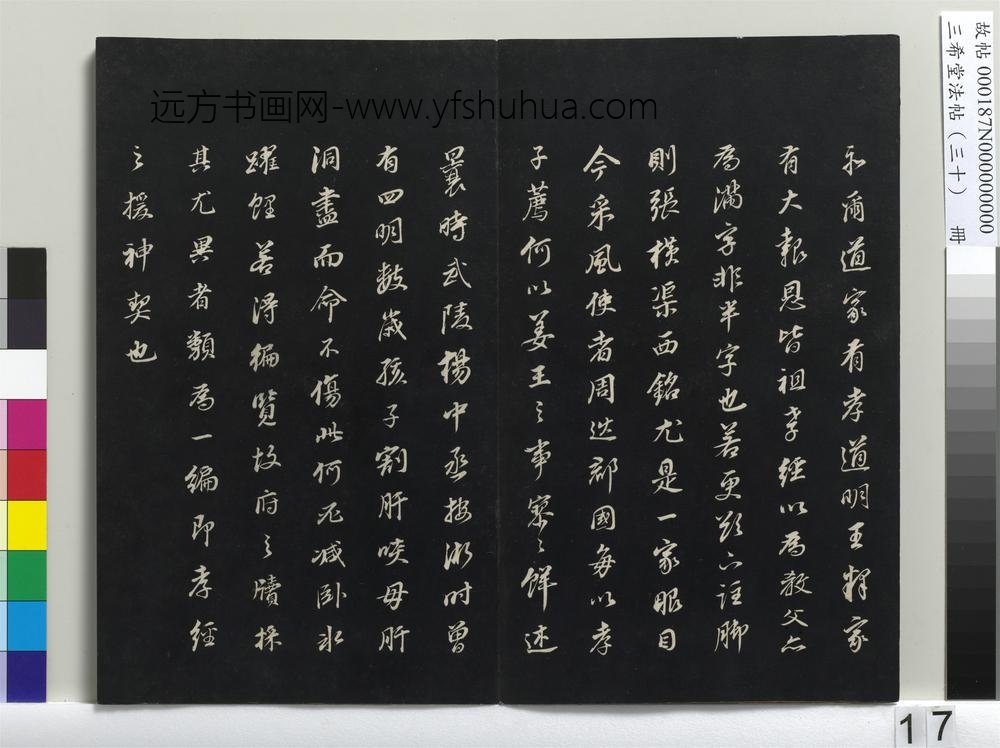 远方书画网-www.yfshuhua.com
故帖 000187N000000000
三希堂法帖（三十） 冊
示爾道家有孝道明王釋家
有大報恩皆祖孝經以為教父亦
為滿字非半字也若更欲六註脚
則張橫渠西銘尤是一家眼目
今采風使者周巡郡國每以孝
子薦何以姜王之事寥寥鮮述
曩時武陵楊中丞按浙時曾
有四明數歲孩子割肝啖母肝
洞盡而命不傷此何不減卧氷
躍鯉若得徧覽故府之牘採
其尤異者類為一編即孝經
之援神契也
17